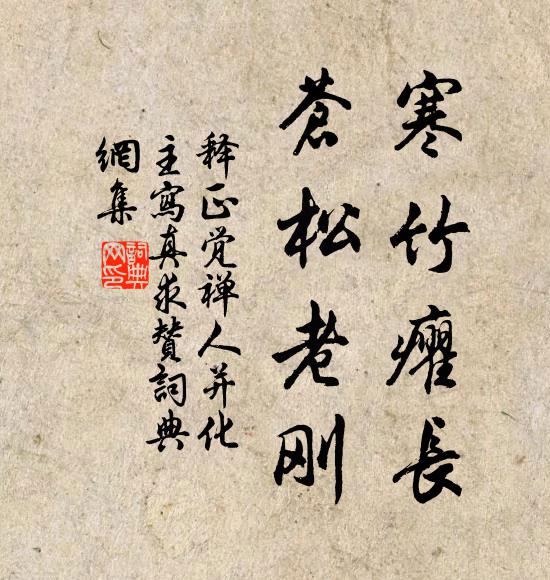 寒竹癯長
蒼松老刚
释正觉禅人并化
主寫真求贊詞典
網集
詞典
网印